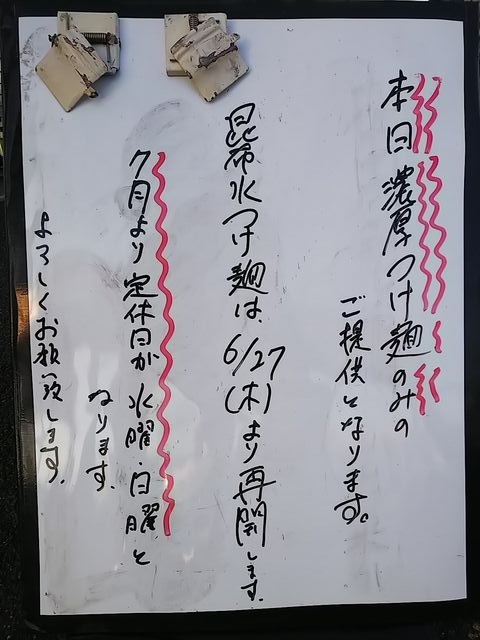 本日濃厚つけ麺のみの
ご提供となります。
昆布水つけ麺は、6/27(木)より再開します。
7月より定休日が水曜・日曜と
なります。
よろしくお願い致します。